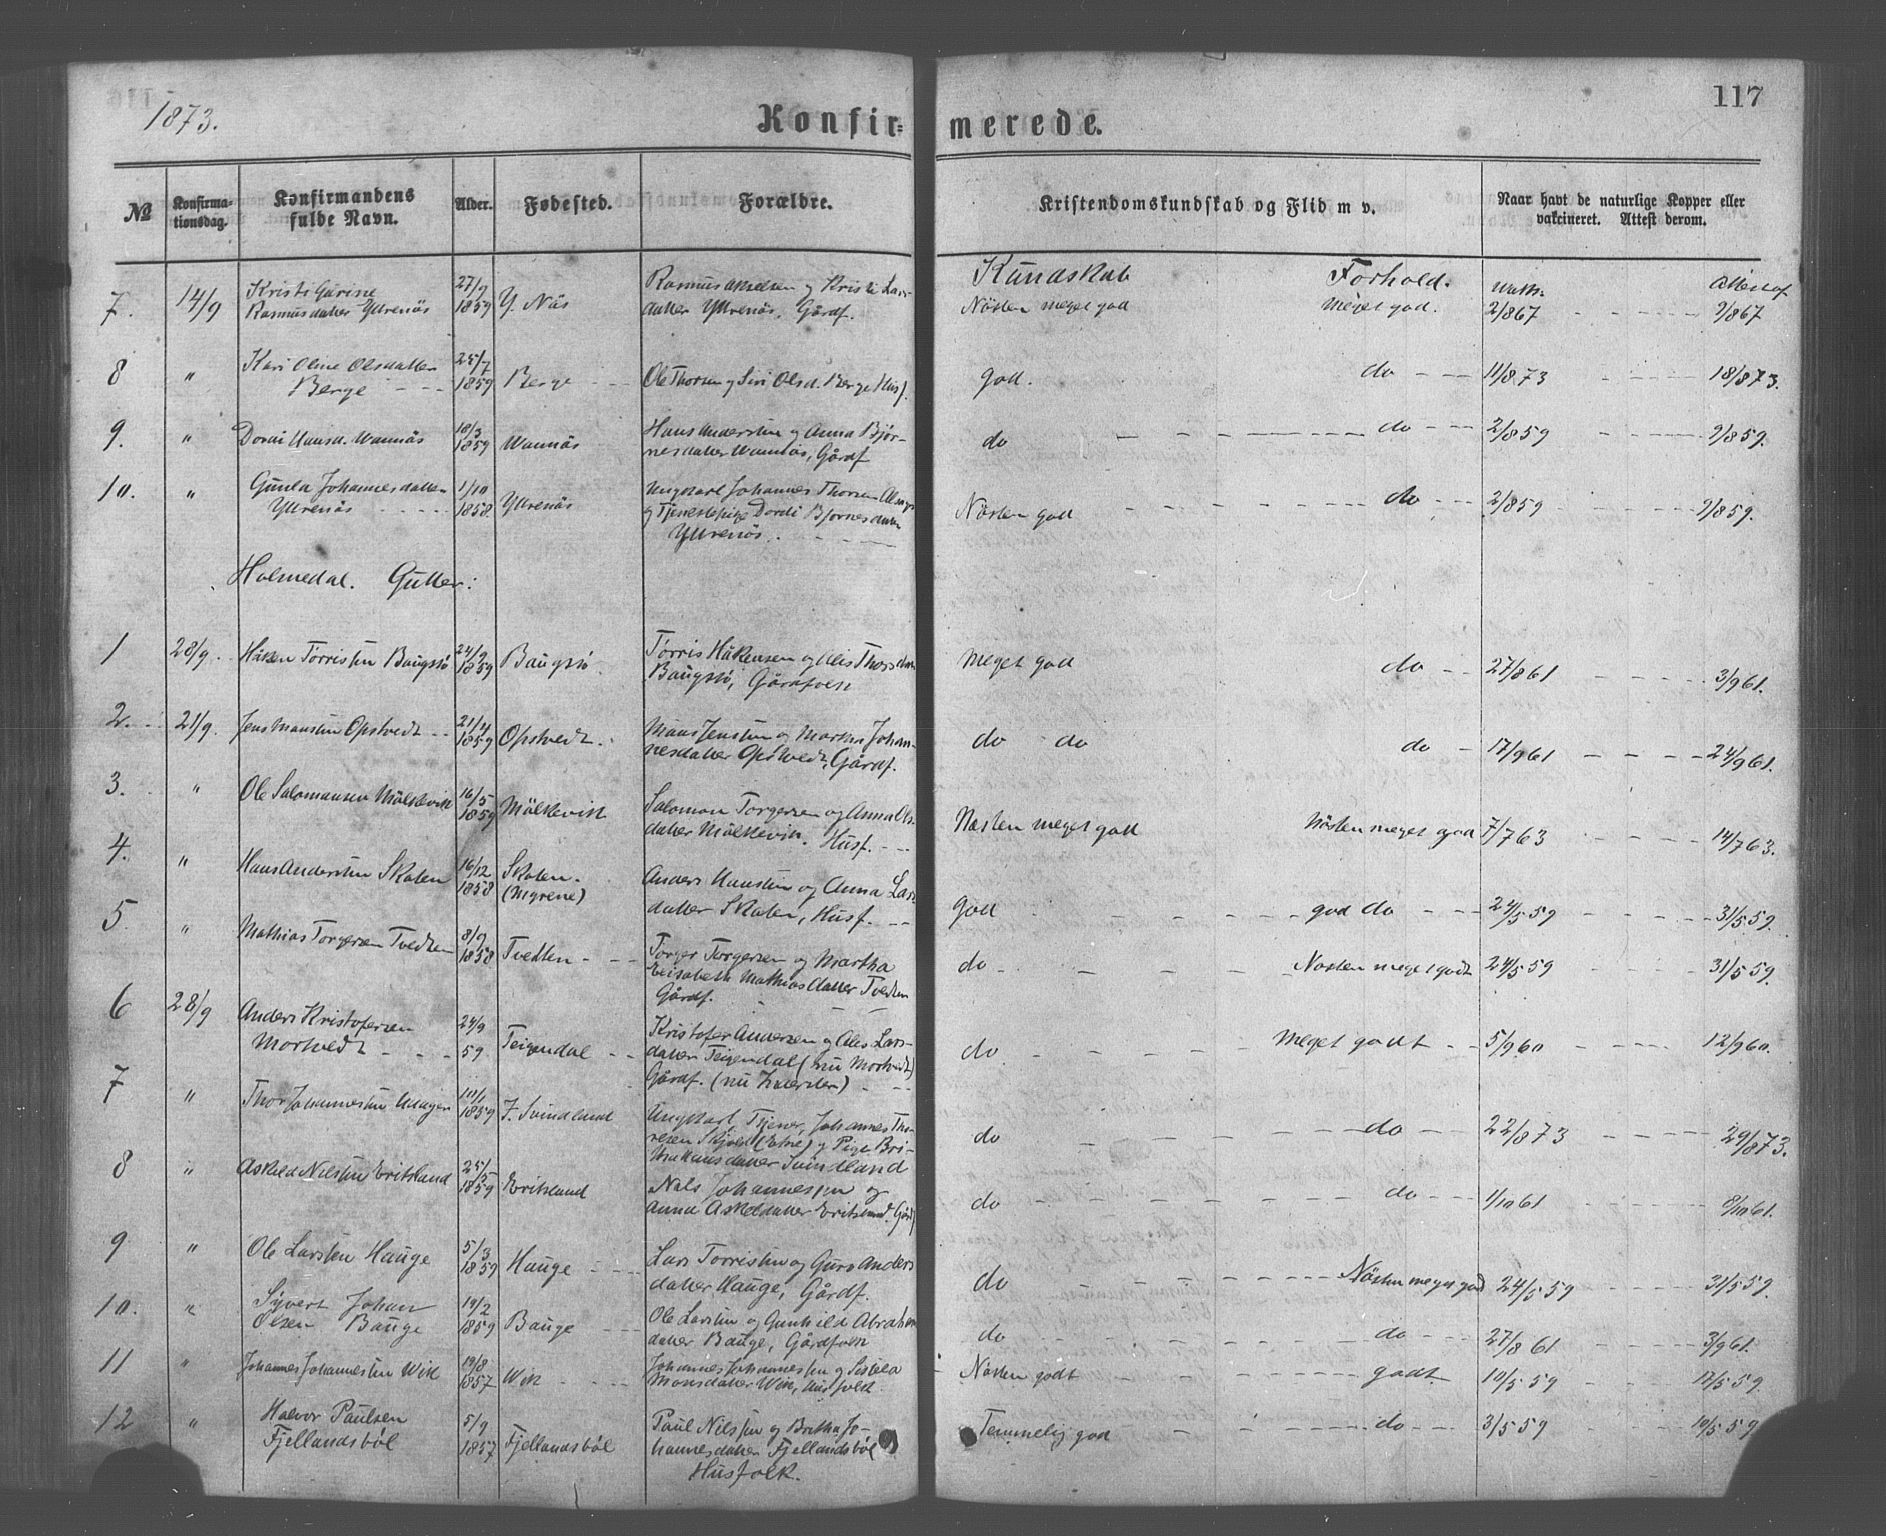 1873.
Konfir=
merede.
117
No
Konfirma-
tionsdag.
Konfirmandens
fulde Navn.
Alder.
Fødested.
Forældre.
Kristendomskundskab og Flid m v.
Naar havt de naturlige Kopper eller
vakcineret. Attest derom.
Kundskab Forhold. Attest af
7. 14/9 Kristi Gurine 27/9 Y. Näs Rasmus Axselsen og Kristi Lars-
Rasmusdatter Yttrenäs 1859 datter Yttrenäs, Gårdf. Nästen meget god meget god. 2/867 9/867
8 " Kari Oline Olsdatter 25/7
Berge 1859 Berge Ole Thorsen og Siri Olsd. Berge Husf. god. do 11/873 18/873.
9. " Dordi Hansd. Wannäs 18/3 1859 Wannäs Hans Andersen og Anna Björ-
nesdatter Wannäs, Gårdf do do 2/859 9/859.
10. " Gunla Johannesdatter 1/10 Ungkarl Johannes Thorsen
Yttrenäs 1858. Yttrenäs og Tjenestepige Dordi Bjornesdatter Nästen god do 2/859 9/859.
Yttrenäs.
Holmedal. Gutter:
1 28/9. Håken Torrissen Baugstö 24/9 1859 Baugstö Torris Håkensen og Alis Thorsdatter
Baugstö, Gårdfolk meget god do 27/861 3/961.
2. 21/9. Jens Monssen Opstvedt 21/4 1859 Opstvedt. Mons Jenssen og Martha Johan-
nesdatter Opstvedt, Gårdf. do do do 17/961 24/961.
3. " Ole Salomonsen Mölstevik 16/5 1859 Mölstevik Salomon Torgersen og Anna Ols-
datter Mölstevik. Husf. Nästen meget god Nästen meget god 7/763 14/763.
4. " Hans Anderssen Skaten 16/12 1858 Skaten.
(Myrene) Anders Hanssen og Anna Lars-
datter Skaten, Husf. God god do 24/559 31/559.
5. " Mathias Torgersen Tvedten 8/9 1858 Tvedten Torger Torgersen og Martha
Elisabeth Mathiasdatter Tvedten
Gårdf. do Nästen meget godt 24/559 31/559.
6 28/9 Anders Kristofersen 24/9 Kristofer Andersen og Ales Lars-
Mortvedt 59. Teigendal datter Teigendal (nu Mortvedt)
Gårdf. do meget godt 5/960 12/960.
7 " Thor Johannessen 1859 Y. Svindland Ungkarl, Tjener, Johannes Tho-
resen Skjold (Etne) og Pige Bri-
tha Hansdatter Svindland do do 22/873 29/873.
8 " Askild Nilssen Eritsland 25/5 1859 Eritsland Nils Johannessen og
Anna Askeldatter Eritsland. Gårdf do do 1/1061 8/1061.
9 " Ole Larssen Hauge 5/3 1859 Hauge Lars Torrissen og Guro Anders
datter Hauge, Gårdf. do Nästen meget god 24/559 31/559.
10. " Syvert Johan 19/2 Ole Larssen og Gunhild Abraham
Olsen Bauge 1859 Bauge datter Bauge, Gårdfolk do do 27/861 3/961.
11 " Johannes Johannessen Wik 19/8 1857 Wik Johannes Johannessen og Sissela
Monsdatter Wik, Husfolk. Nästen godt godt 10/559 17/559.
12 " Halvor Paulsen 5/9 Paul Nilssen og Britha Jo-
Fjellandsböl 1857 Fjellandsböl hannesdatter Fjellandsböl Temmelig god do 3/559 10/559.
Husfolk.